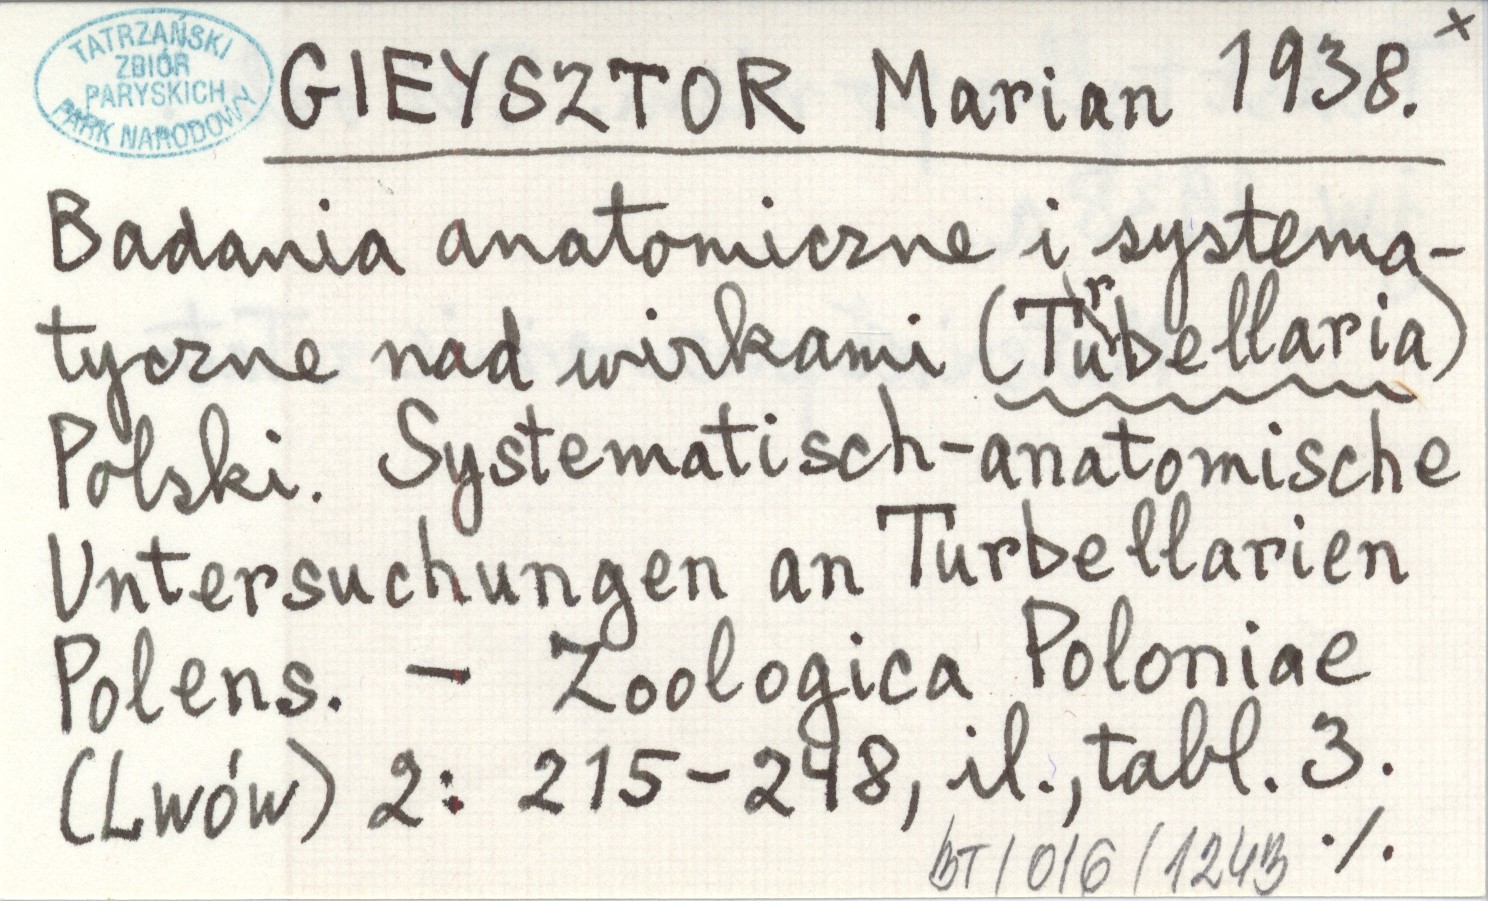 TATRZAŃSKI
ZBIÓR
PARYSKICH
PARK NARODOWY
GIEYSZTOR Marian 1938. x
Badania anatomiczne i systema-
tyczne nad wirkami (Turbellaria)
Polski. Systematisch-anatomische
Untersuchungen an Turbellarien
Polens. – Zoologica Poloniae
(Lwów) 2: 215–248, il., tabl. 3.
BT/016/1243 ./.